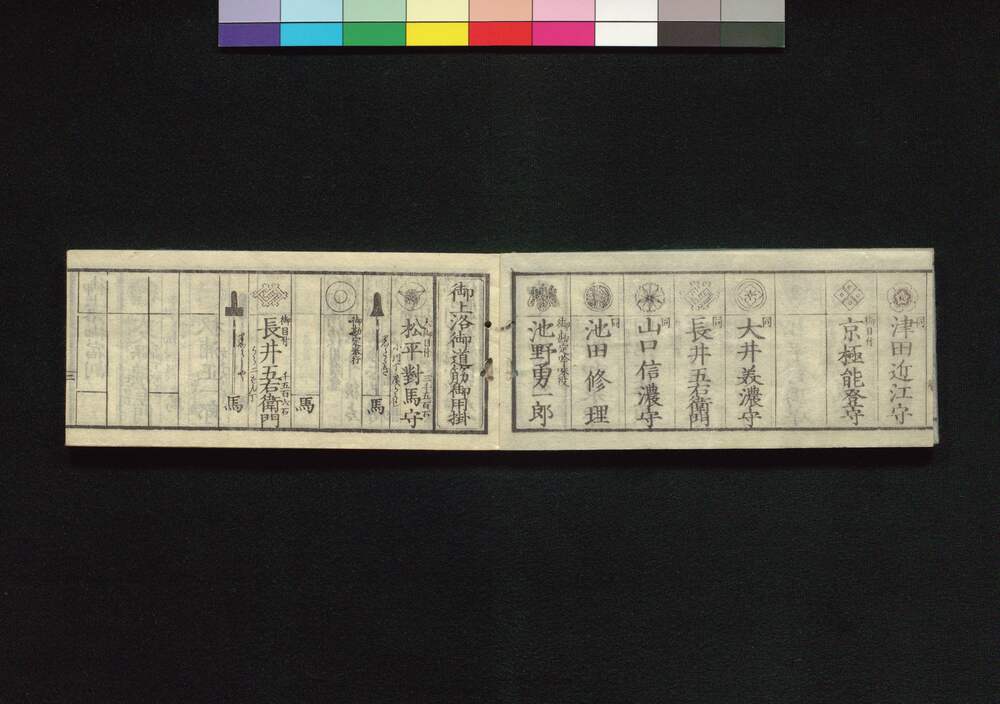 津田近江守
御目付
京極能登守
同
大井美濃守
同
長井五右衛門
同
山口信濃守
同
池田修理
御勘定吟味役
池野勇一郎
御上洛御道筋御用掛
大御目付
松平對馬守
馬
御勘定奉行
馬
御目付
長井五右衛門
千五百六石
馬
三